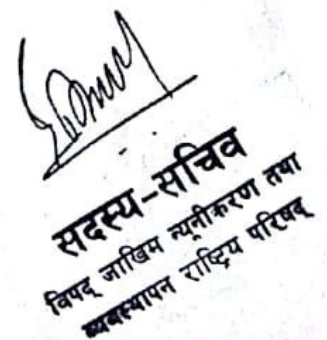 सदस्य-सचिव
विपद् जोखिम न्यूनीकरण तथा
व्यवस्थापन राष्ट्रिय परिषद्